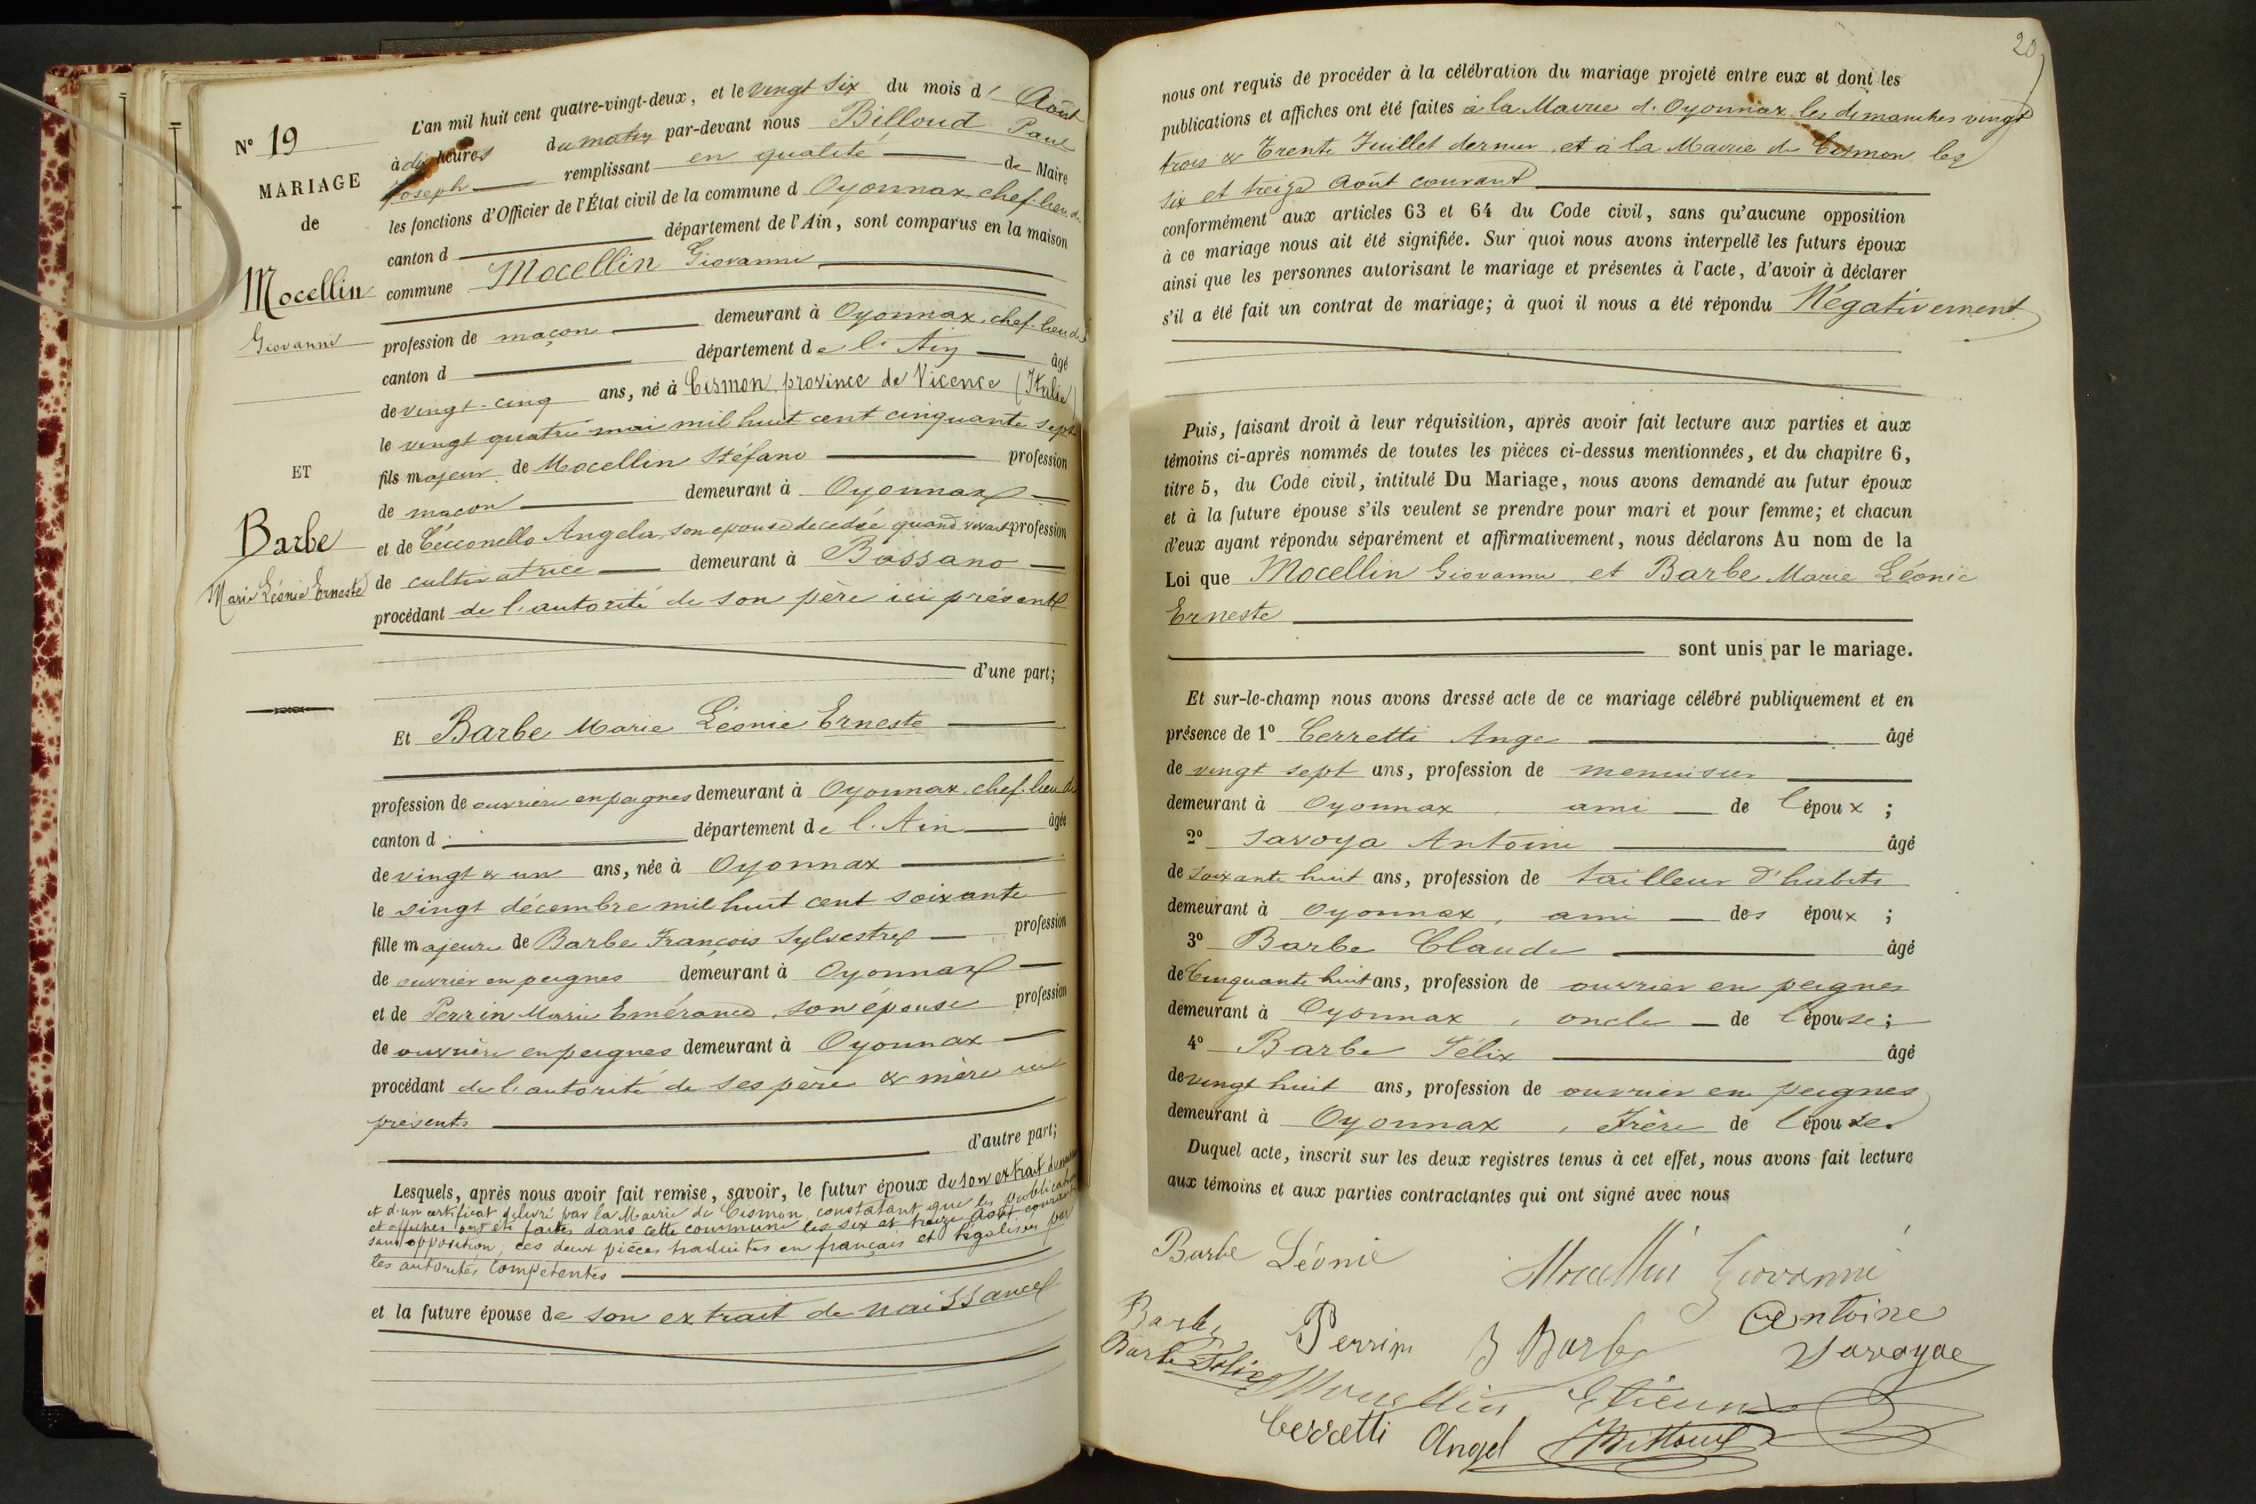 N° 19
MARIAGE
de
Mocellin
Giovanni
ET
Barbe
Marie Léonie Erneste
L'an mil huit cent quatre-vingt-deux, et le vingt six du mois d' Août
à dix heures du matin par-devant nous Billoud Paul
Joseph remplissant en qualité de Maire
les fonctions d'Officier de l'État civil de la commune d Oyonnax chef-lieu de
canton d département de l'Ain, sont comparus en la maison
commune Mocellin Giovanni
profession de maçon demeurant à Oyonnax, chef-lieu de
canton d département de l'Ain âgé
de vingt-cinq ans, né à Cismon, province de Vicence (Italie)
le vingt quatre mai mil huit cent cinquante sept
fils majeur de Mocellin Stéfano profession
de maçon demeurant à Oyonnax
et de Cecconello Angela, son épouse décédée quand vivait profession
de cultivatrice demeurant à Bassano
procédant de l'autorité de son père ici présent
d'une part;
Et Barbe Marie Léonie Erneste
profession de ouvrière en peignes demeurant à Oyonnax, chef-lieu de
canton d département de l'Ain âgée
de vingt & un ans, née à Oyonnax
le vingt décembre mil huit cent soixante
fille majeure de Barbe François Sylvestre profession
de ouvrier en peignes demeurant à Oyonnax
et de Perrin Marie Emérance, son épouse profession
de ouvrière en peignes demeurant à Oyonnax
procédant de l'autorité de ses père & mère ici
présents
d'autre part;
Lesquels, après nous avoir fait remise, savoir, le futur époux de son extrait de
et d'un certificat délivré par la Mairie de Cismon, constatant que les publications
et affiches ont été faites dans cette commune les six et treize Août courant
sans opposition, ces deux pièces traduites en français et légalisées par
les autorités compétentes
et la future épouse de son extrait de naissance
20
nous ont requis de procéder à la célébration du mariage projeté entre eux et dont les
publications et affiches ont été faites à la Mairie d'Oyonnax les dimanches vingt
trois & trente Juillet dernier, et à la Mairie de Cismon les
six et treize Août courant
conformément aux articles 63 et 64 du Code civil, sans qu'aucune opposition
à ce mariage nous ait été signifiée. Sur quoi nous avons interpellé les futurs époux
ainsi que les personnes autorisant le mariage et présentes à l'acte, d'avoir à déclarer
s'il a été fait un contrat de mariage; à quoi il nous a été répondu Négativement
Puis, faisant droit à leur réquisition, après avoir fait lecture aux parties et aux
témoins ci-après nommés de toutes les pièces ci-dessus mentionnées, et du chapitre 6,
titre 5, du Code civil, intitulé Du Mariage, nous avons demandé au futur époux
et à la future épouse s'ils veulent se prendre pour mari et pour femme; et chacun
d'eux ayant répondu séparément et affirmativement, nous déclarons Au nom de la
Loi que Mocellin Giovanni et Barbe Marie Léonie
Erneste
sont unis par le mariage.
Et sur-le-champ nous avons dressé acte de ce mariage célébré publiquement et en
présence de 1° Cerretti Ange âgé
de vingt sept ans, profession de menuisier
demeurant à Oyonnax, ami de l'époux;
2° Savoya Antoine âgé
de soixante huit ans, profession de tailleur d'habits
demeurant à Oyonnax, ami des époux;
3° Barbe Claude âgé
de Cinquante huit ans, profession de ouvrier en peignes
demeurant à Oyonnax, oncle de l'épouse;
4° Barbe Félix âgé
de vingt huit ans, profession de ouvrier en peignes
demeurant à Oyonnax, Frère de l'épouse.
Duquel acte, inscrit sur les deux registres tenus à cet effet, nous avons fait lecture
aux témoins et aux parties contractantes qui ont signé avec nous
Barbe Léonie Mocellin Giovanni
Barbe Perrin Barbe Antoine
Barbe Félix Savoyae
Mocellin Etienne
Cerretti Angel Billoud